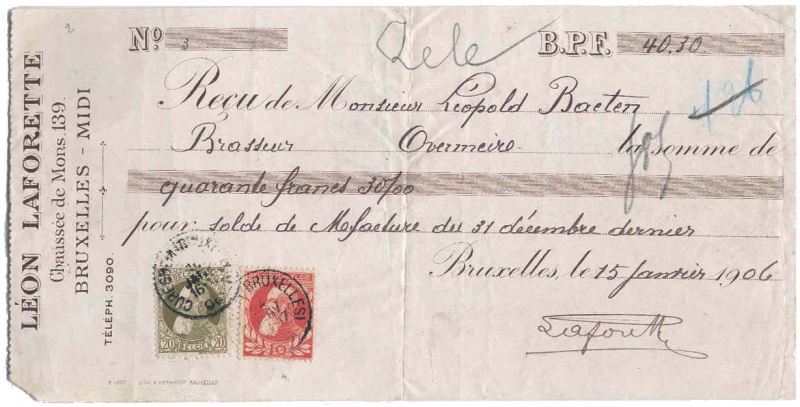 LEON LAFORETTE
Chaussée de Mons.139.
BRUXELLES - MIDI
TÉLÉPH. 3090.
2
Nº 3
B.P.F. 40.30
Reçu de Monsieur Léopold Baeten
Brasseur Overmeire la somme de
quarante francs 30/00
pour solde de Mefacture du 31 décembre dernier
Bruxelles, le 15 Janvier 1906
Laforette
BRUXELLES
20 BELGIË 20
10